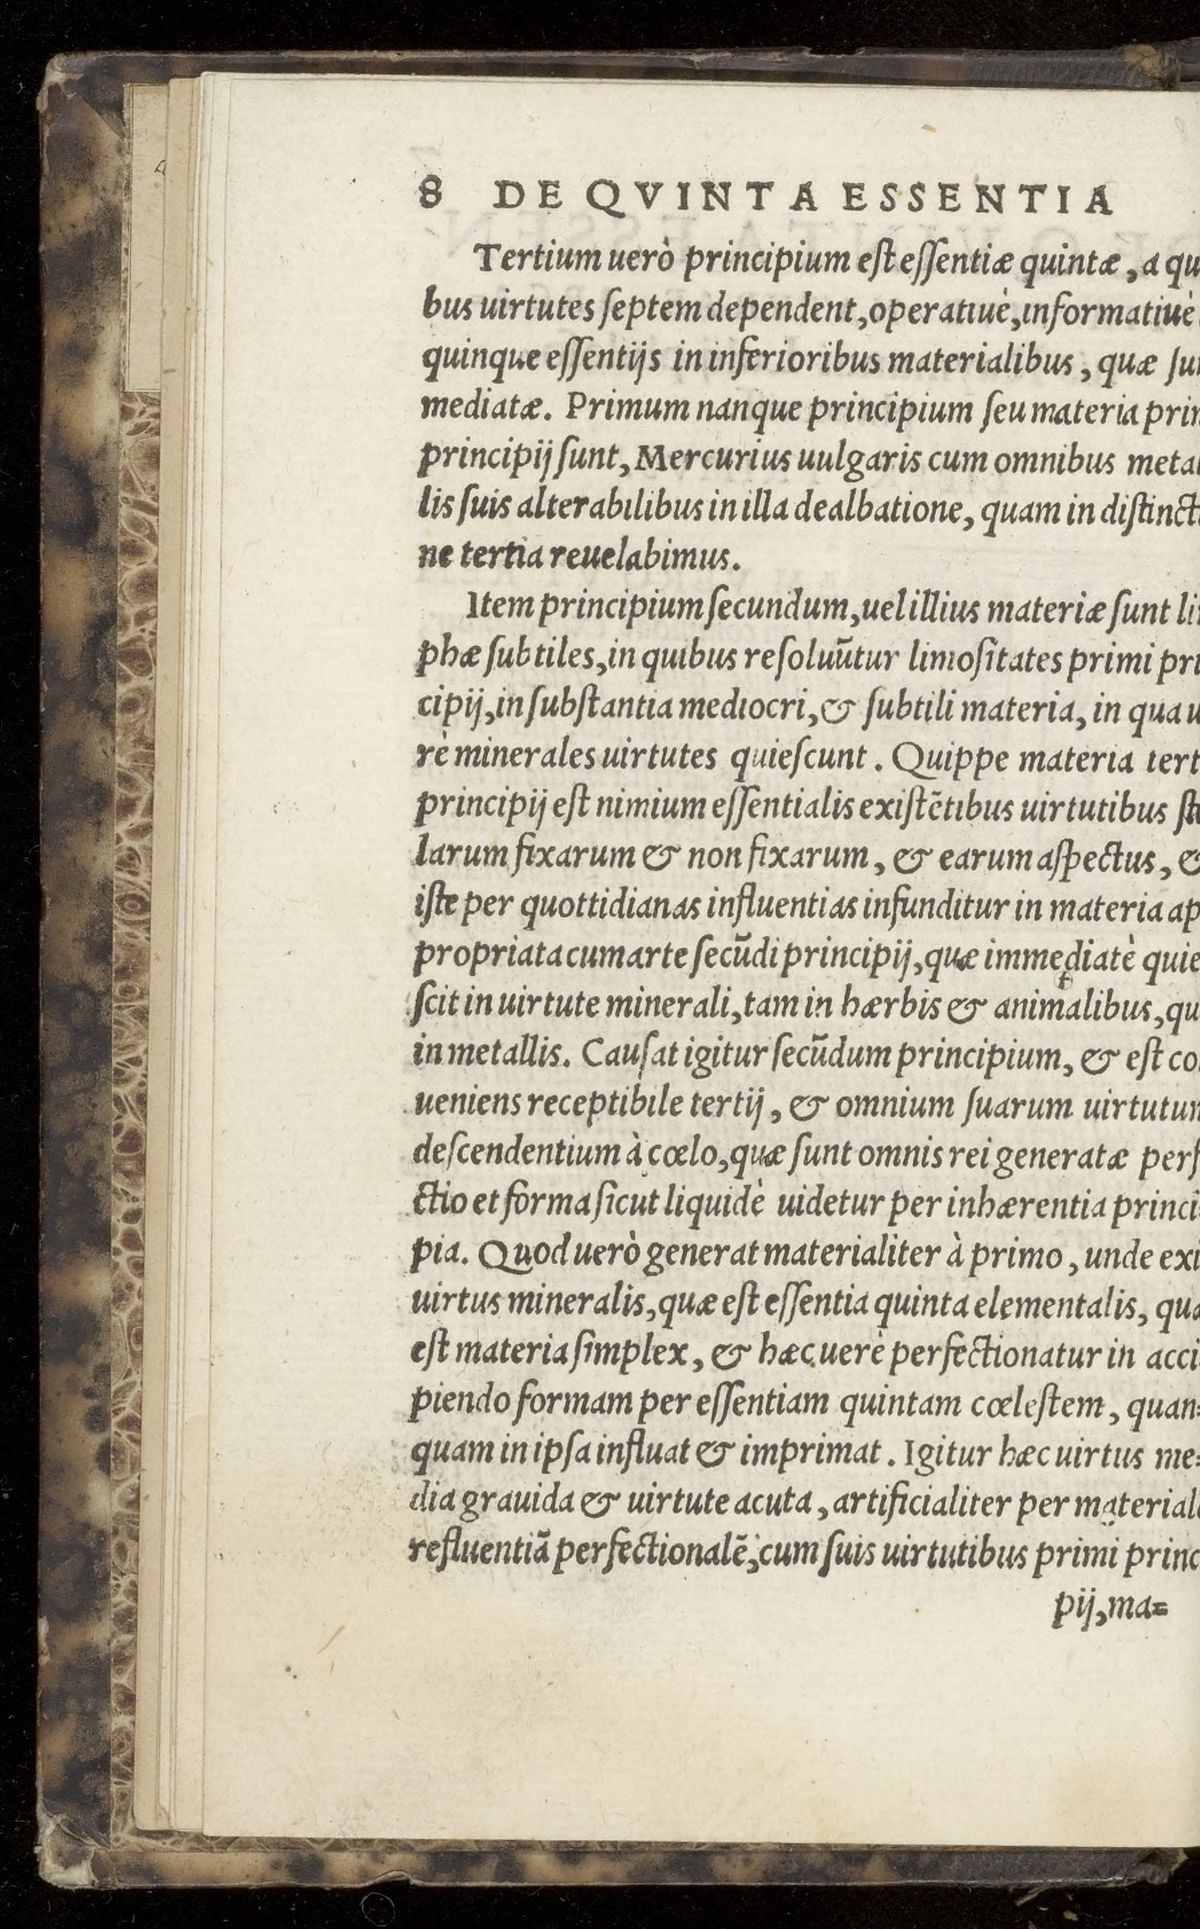 8 DE QVINTA ESSENTIA
Tertium uerò principium est essentiæ quintæ, a qu
bus uirtutes septem dependent, operatiuè, informatiuè
quinque essentijs in inferioribus materialibus, quæ su
mediatæ. Primum nanque principium seu materia prin
principij sunt, Mercurius uulgaris cum omnibus metal
lis suis alterabilibus in illa dealbatione, quam in distincti
ne tertia reuelabimus.
Item principium secundum, uel illius materiæ sunt li
phæ subtiles, in quibus resoluũtur limositates primi pri
cipij, in substantia mediocri, & subtili materia, in qua u
rè minerales uirtutes quiescunt. Quippe materia tert
principij est nimium essentialis existẽtibus uirtutibus ste
larum fixarum & non fixarum, & earum aspectus, &
iste per quottidianas influentias infunditur in materia ap
propriata cum arte secũdi principij, quæ immediatè quie
scit in uirtute minerali, tam in hærbis & animalibus, qu
in metallis. Causat igitur secũdum principium, & est co
ueniens receptibile tertij, & omnium suarum uirtutum
descendentium à cœlo, quæ sunt omnis rei generatæ perf
ctio et forma sicut liquidè uidetur per inhærentia princi
pia. Quod uerò generat materialiter à primo, unde exi
uirtus mineralis, quæ est essentia quinta elementalis, quæ
est materia simplex, & hæc uerè perfectionatur in acci
piendo formam per essentiam quintam cœlestem, quan=
quam in ipsa influat & imprimat. Igitur hæc uirtus me=
dia grauida & uirtute acuta, artificialiter per material
refluentiã perfectionalẽ, cum suis uirtutibus primi princ
pij, ma=